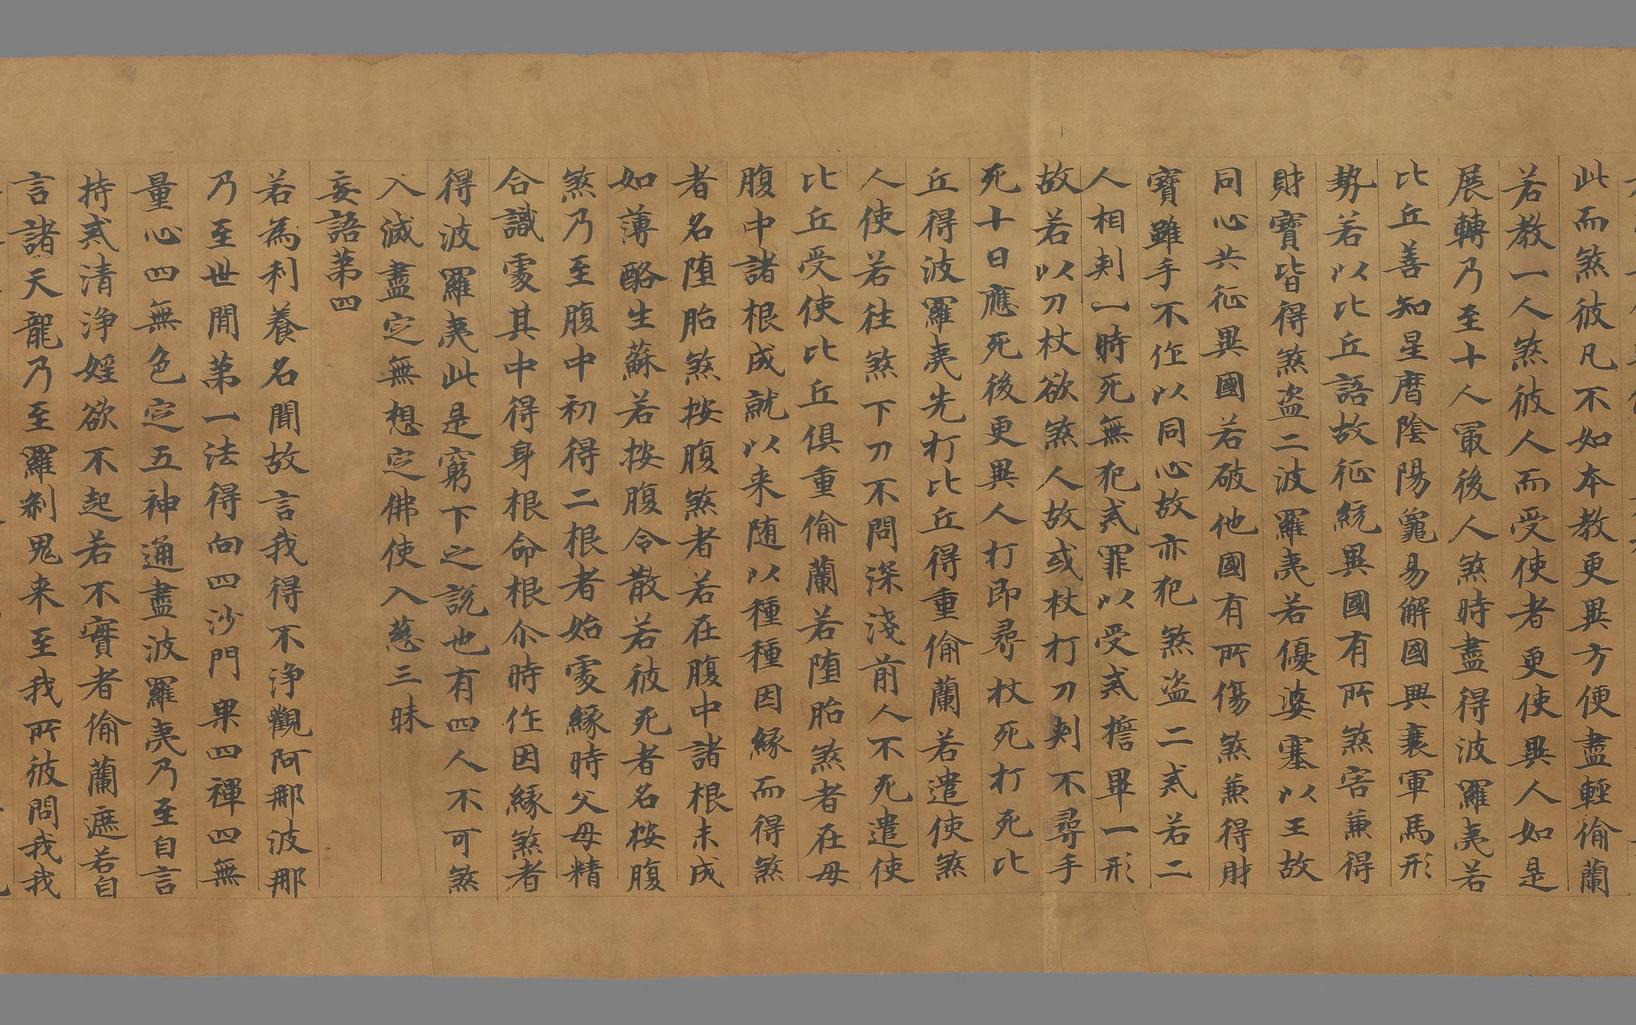 此而煞彼凡不如本教更異方便盡輕偷蘭
若教一人煞彼人而受使者更使異人如是
展轉乃至十人冣後人煞時盡得波羅夷若
比丘善知星曆陰陽龜易解國興衰軍馬形
勢若以比丘語故征統異國有所煞害兼得
財寶皆得煞盜二波羅夷若優婆塞以王故
同心共征異國若破他國有所傷煞兼得財
寶雖手不作以同心故亦犯煞盜二戒若二
人相刾一時死無犯戒罪以受戒擔畢一形
故若以刀杖欲煞人故或杖打刀刾不尋手
死十日應死後更異人打即尋杖死打死比
丘得波羅夷先打比丘得重偷蘭若遣使煞
人使若往煞下刀不問深淺前人不死遣使
比丘受使比丘俱重偷蘭若堕胎煞者在母
腹中諸根成就以来随以種種因緣而得煞
者名堕胎煞按腹煞者若在腹中諸根未成
如薄酪生蘇若按腹令散若彼死者名桉腹
煞乃至腹中初得二根者始處緣時父母精
合識處其中得身根命根尒時作因緣煞者
得波羅夷此是窮下之說也有四人不可煞
入滅盡定無想定佛使入慈三昧
妄語第四
若為利養名聞故言我得不淨觀阿那波那
乃至世間第一法得向四沙門果四禪四無
量心四無色定五神通盡波羅夷乃至自言
持戒清淨婬欲不起若不實者偷蘭遮若自
言諸天龍乃至羅剎鬼来至我所彼問我我